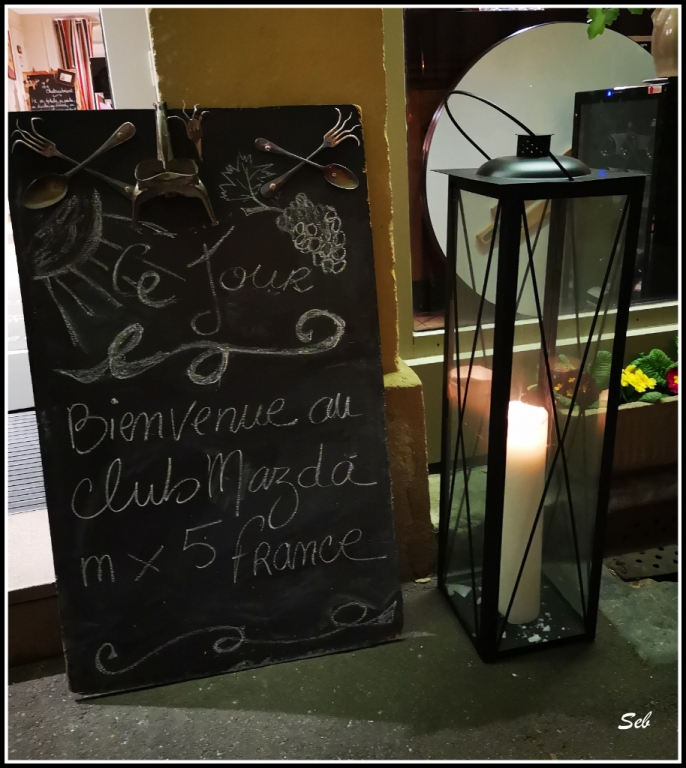 Ce Jour
Bienvenue au
club Mazda
m x 5 france
Seb